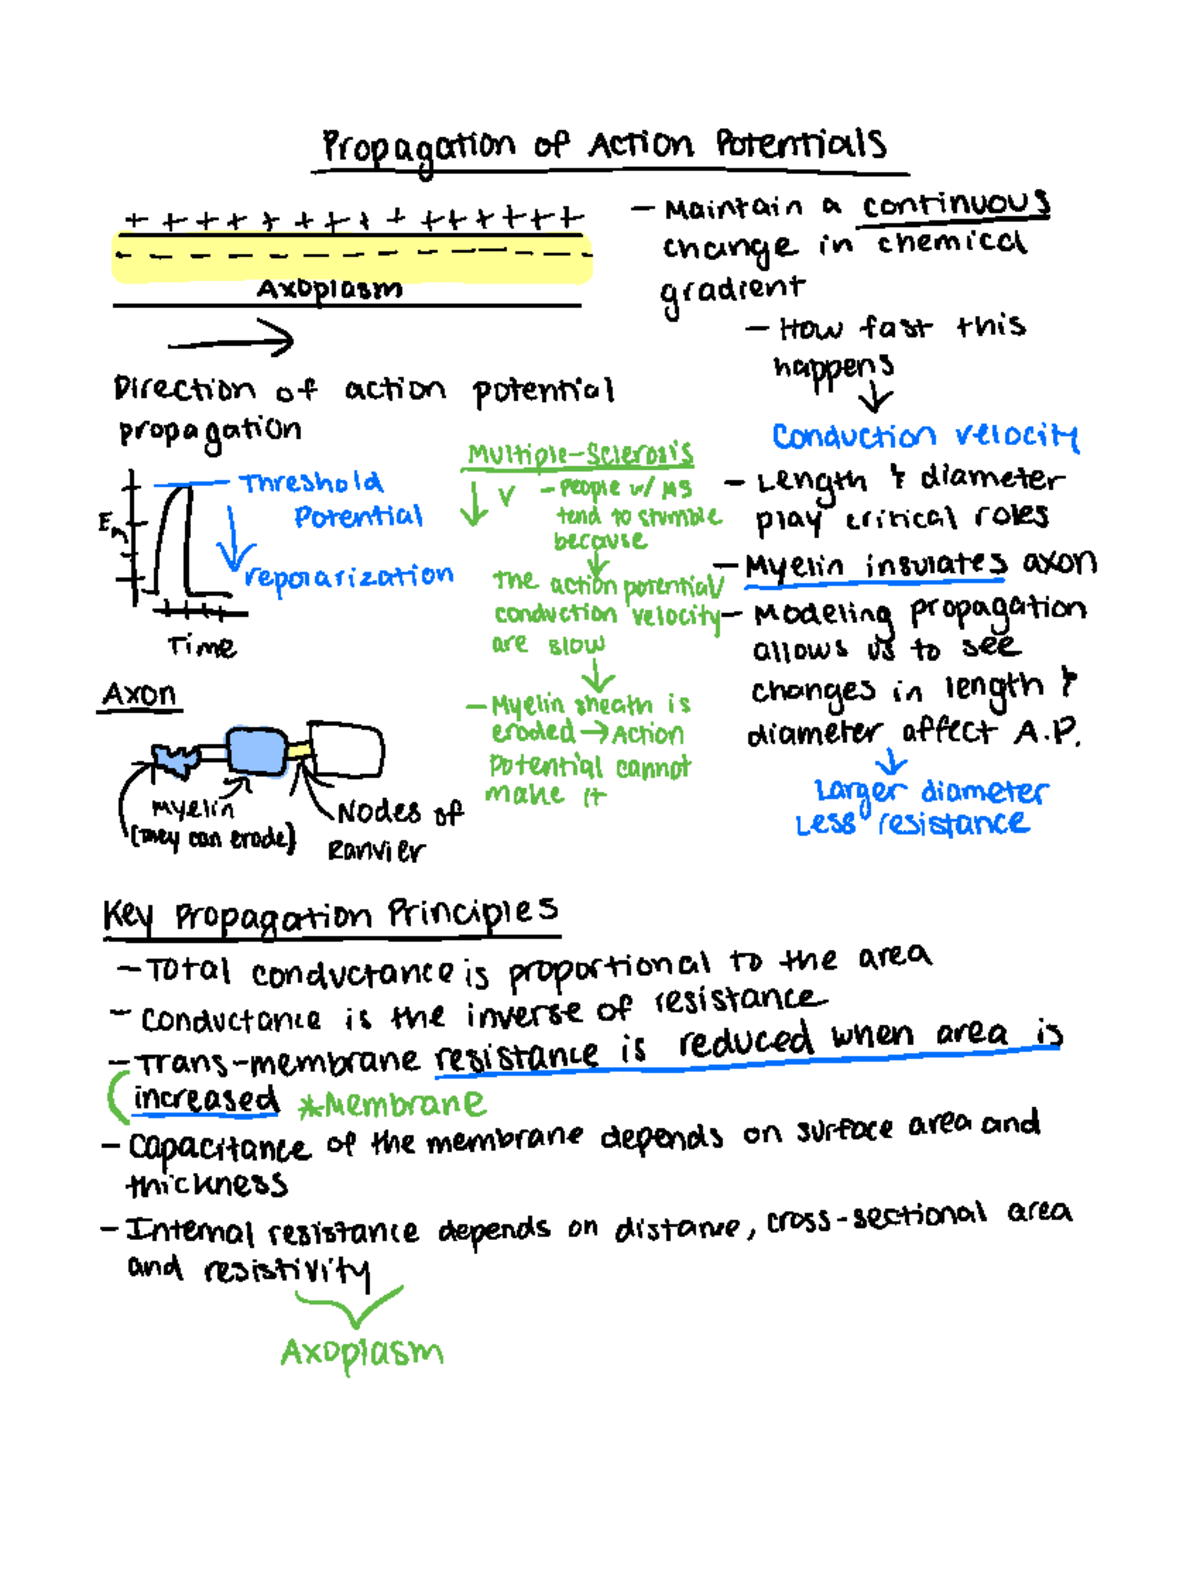 Propagation of Action Potentials
+ + + + + + + + + + + + + + +
– – – – – – – – – – – – – –
Axoplasm
Direction of action potential
propagation
Threshold
Potential
repolarization
Em
Time
Axon
Myelin
(they can erode)
Nodes of
Ranvier
Multiple-Sclerosis
↓ V - People w/ MS
tend to stumble
because
The action potential/
conduction velocity
are slow
- Myelin sheath is
eroded → Action
Potential cannot
make it
- Maintain a continuous
change in chemical
gradient
- How fast this
happens
Conduction velocity
- Length & diameter
play critical roles
- Myelin insulates axon
- Modeling propagation
allows us to see
changes in length &
diameter affect A.P.
Larger diameter
Less resistance
Key Propagation Principles
- Total conductance is proportional to the area
- Conductance is the inverse of resistance
- Trans-membrane resistance is reduced when area is
increased *Membrane
- Capacitance of the membrane depends on surface area and
thickness
- Internal resistance depends on distance, cross-sectional area
and resistivity
Axoplasm